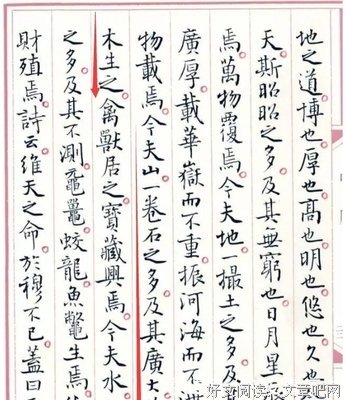 地之道博也厚也髙也明也悠也久也
天斯昭昭之多及其無窮也日月星
焉萬物覆焉今夫地一撮土之多及
廣厚載華嶽而不重振河海而不
物載焉今夫山一卷石之多及其廣大
木生之禽獸居之寶藏興焉今夫水
之多及其不測黿鼉蛟龍魚鼈生焉
財殖焉詩云維天之命於穆不已蓋曰